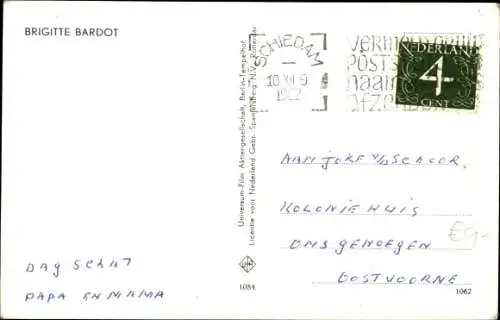 BRIGITTE BARDOT
SCHIEDAM
10 XII 9
1962
POSTS
naam
afzender
NEDERLAND
4
CENT
Universum-Film Aktiengesellschaft, Berlin-Tempelhof
Licentie voor Nederland: Gebr. Spanjersberg N.V., Rotterdam
AAN JOKE V/D SCHOOR.
KOLONIE HUIS
ONS GENOEGEN
OOSTVOORNE
€9-
DAG SCHAT
PAPA EN MAMA
1084
1062